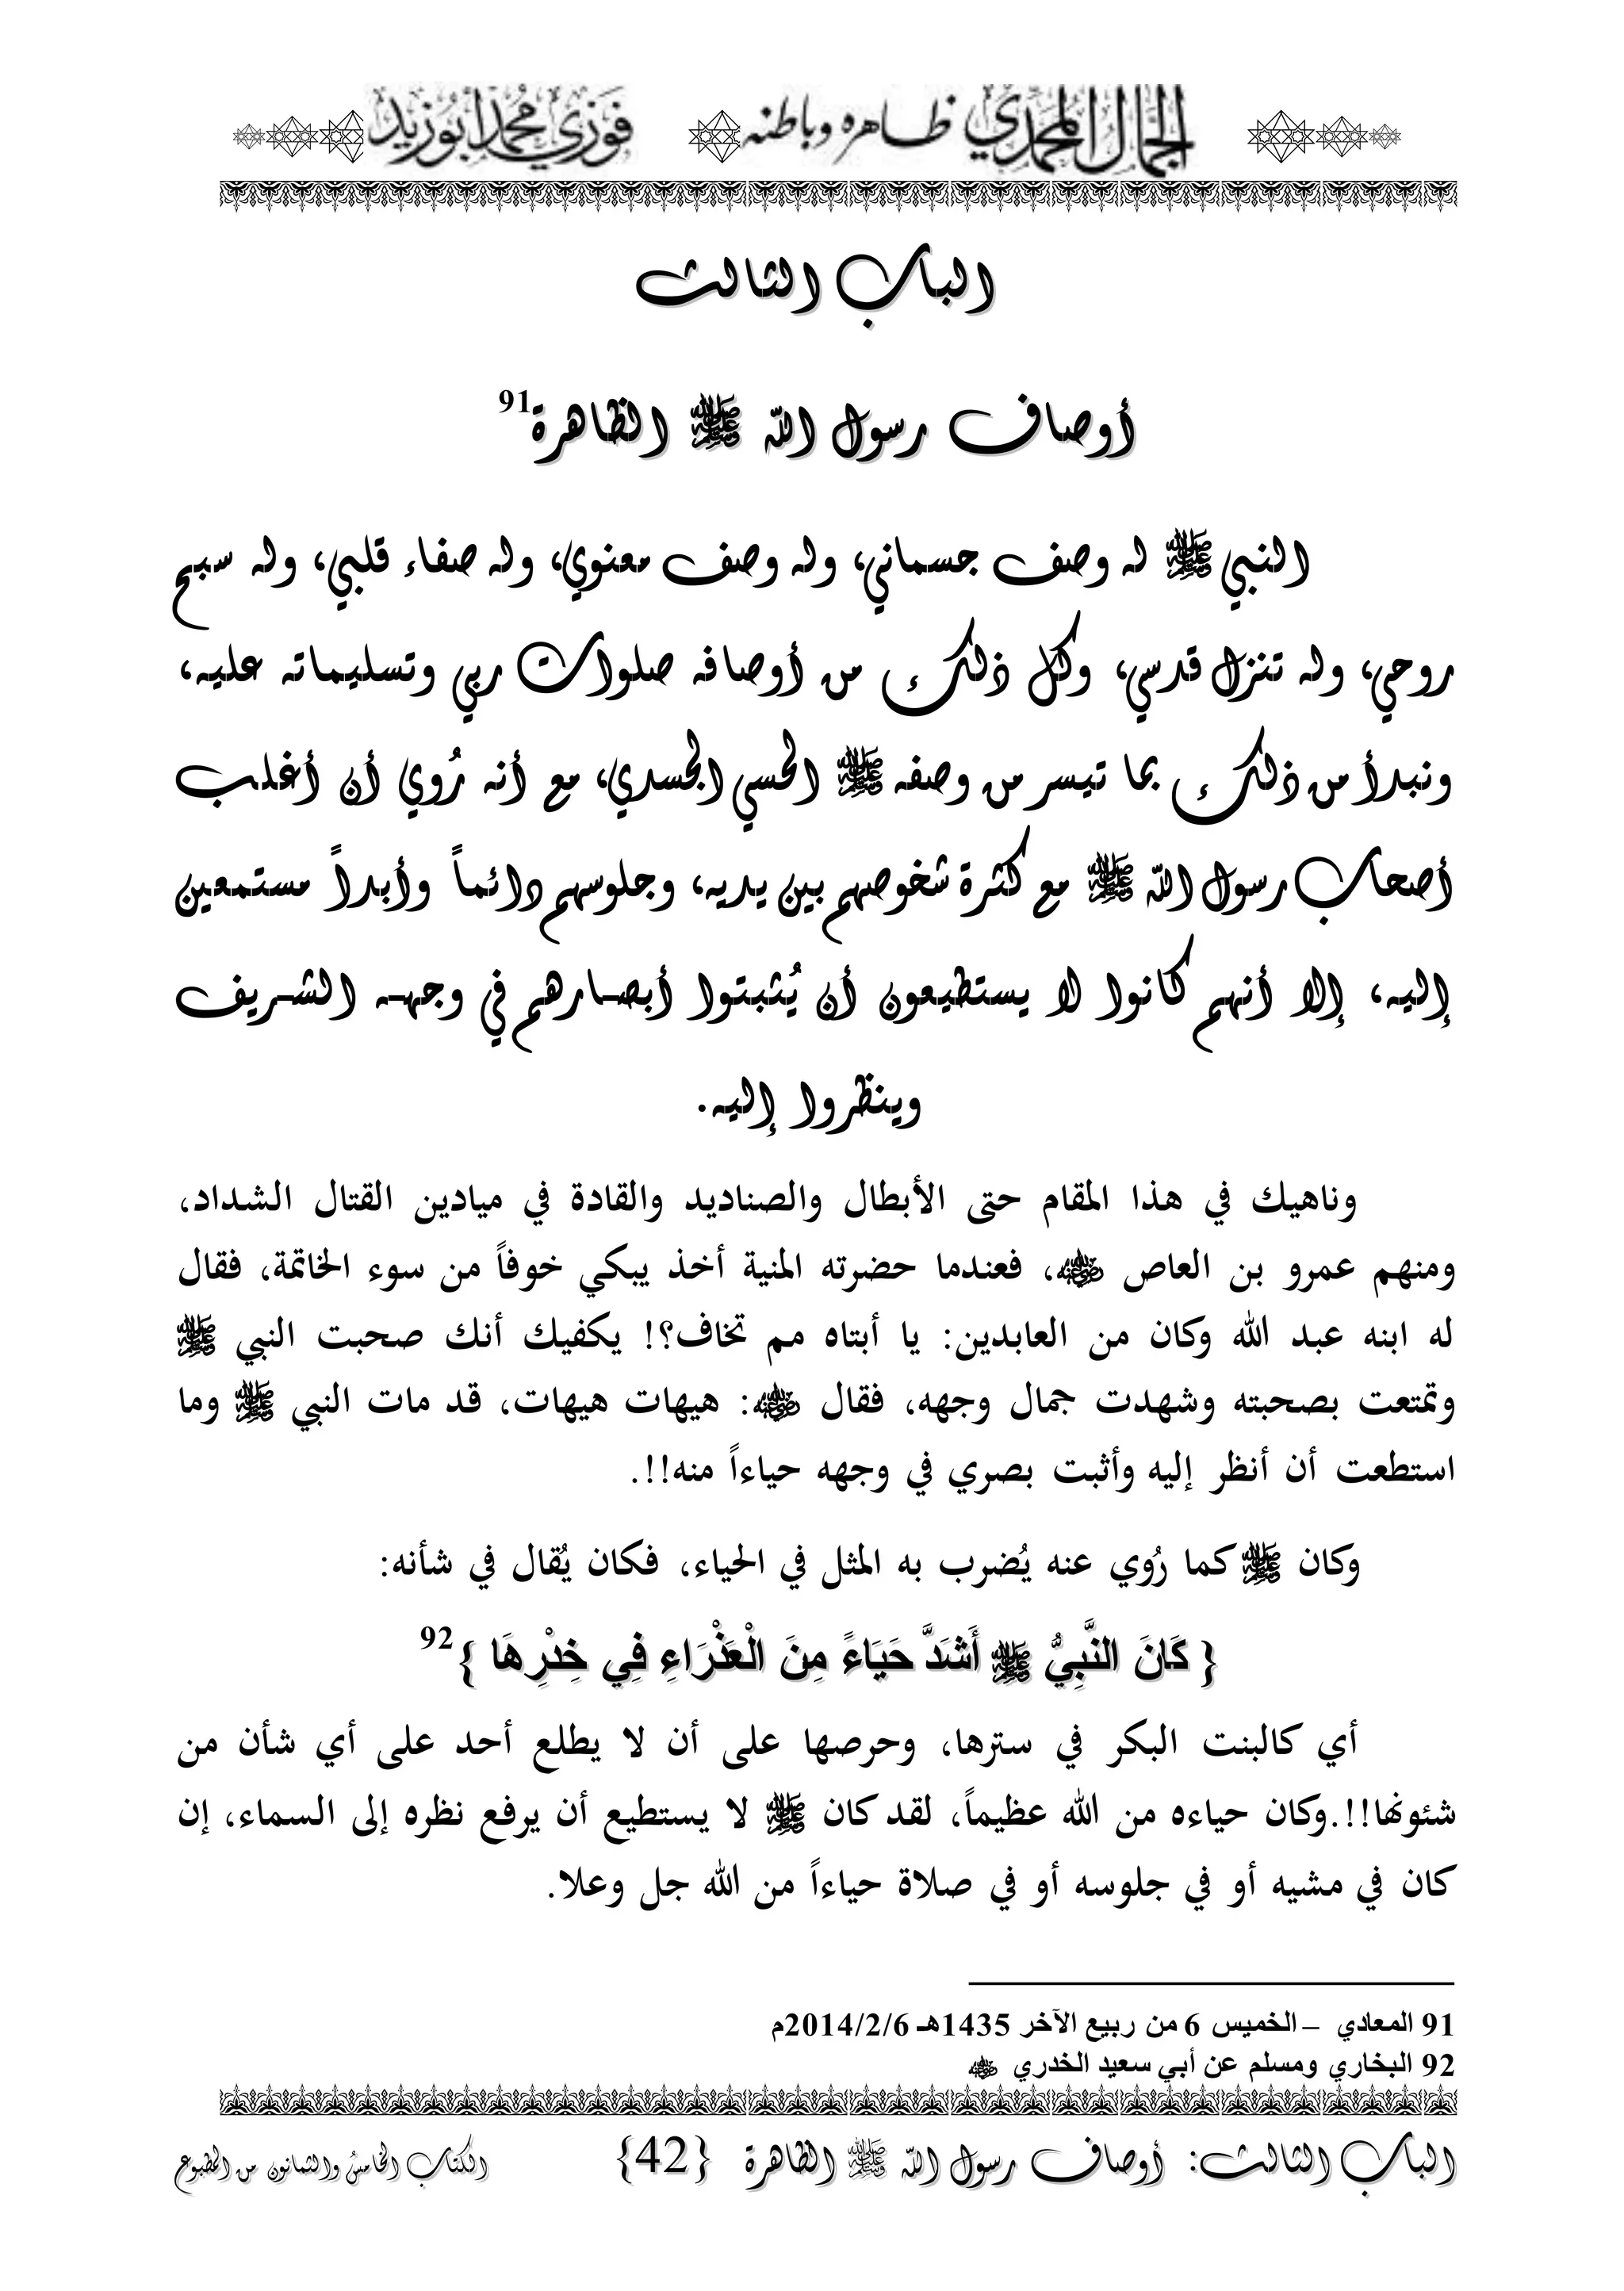 الجمال المحمدي ظاهره وباطنه فوزي محمد أبوزيد
الباب الثالث
أوصاف رسول الله ﷺ الظاهرة91
النبي ﷺ له وصف جسماني، وله وصف معنوي، وله صفاء قلبي، وله سبح
روحي، وله تنزل قدسي، وكل ذلك من أوصافه صلوات ربي وتسليماته عليه،
ونبدأ من ذلك بما تيسر من وصفه ﷺ الحسي الجسدي، مع أنه رُوي أن أغلب
أصحاب رسول الله ﷺ مع كثرة شخوصهم بين يديه، وجلوسهم دائماً وأبداً مستمعين
إليه، إلا أنهم كانوا لا يستطيعون أن يُثبتوا أبصارهم في وجهه الشريف
وينظروا إليه.
وناهيك في هذا المقام حتى الأبطال والصناديد والقادة في ميادين القتال الشداد،
ومنهم عمرو بن العاص رضي الله عنه، فعندما حضرته المنية أخذ يبكي خوفاً من سوء الخاتمة، فقال
له ابنه عبد الله وكان من العابدين: يا أبتاه مم تخاف؟! يكفيك أنك صحبت النبي ﷺ
وتمتعت بصحبته وشهدت جمال وجهه، فقال رضي الله عنه: هيهات هيهات، قد مات النبي ﷺ وما
استطعت أن أنظر إليه وأثبت بصري في وجهه حياءاً منه!!.
وكان ﷺ كما رُوي عنه يُضرب به المثل في الحياء، فكان يُقال في شأنه:
{ كَانَ النَّبِيُّ ﷺ أَشَدَّ حَيَاءً مِنَ الْعَذْرَاءِ فِي خِدْرِهَا }92
أي كالبنت البكر في سترها، وحرصها على أن لا يطلع أحد على أي شأن من
شئونها!!.وكان حياءه من الله عظيماً، لقد كان ﷺ لا يستطيع أن يرفع نظره إلى السماء، إن
كان في مشيه أو في جلوسه أو في صلاة حياءاً من الله جل وعلا.
91 المعادي – الخميس 6 من ربيع الآخر 1435هـ 2014/2/6م
92 البخاري ومسلم عن أبي سعيد الخدري رضي الله عنه
الباب الثالث: أوصاف رسول الله ﷺ الظاهرة {42} الكتاب الخامس والثمانون من المطبوع